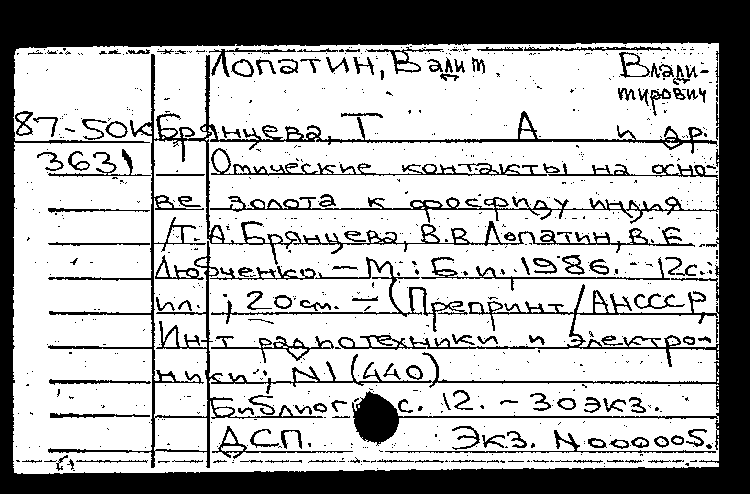 Лопатин, В Влади-
мирович
87-50К Брянцева, Т А и др.
3631 Омические контакты на осно-
ве золота к фосфиду индия
/Т.А. Брянцева, В.В Лопатин, В.Е
Любченко. – М.: Б.и., 1986. – 12с.:
ил.; 20 см. – (Препринт/АНСССР,
Ин-т радиотехники и электро-
ники; N1 (440)
Библиогр с. 12. – 30 экз.
ДСП. Экз. N 000005.